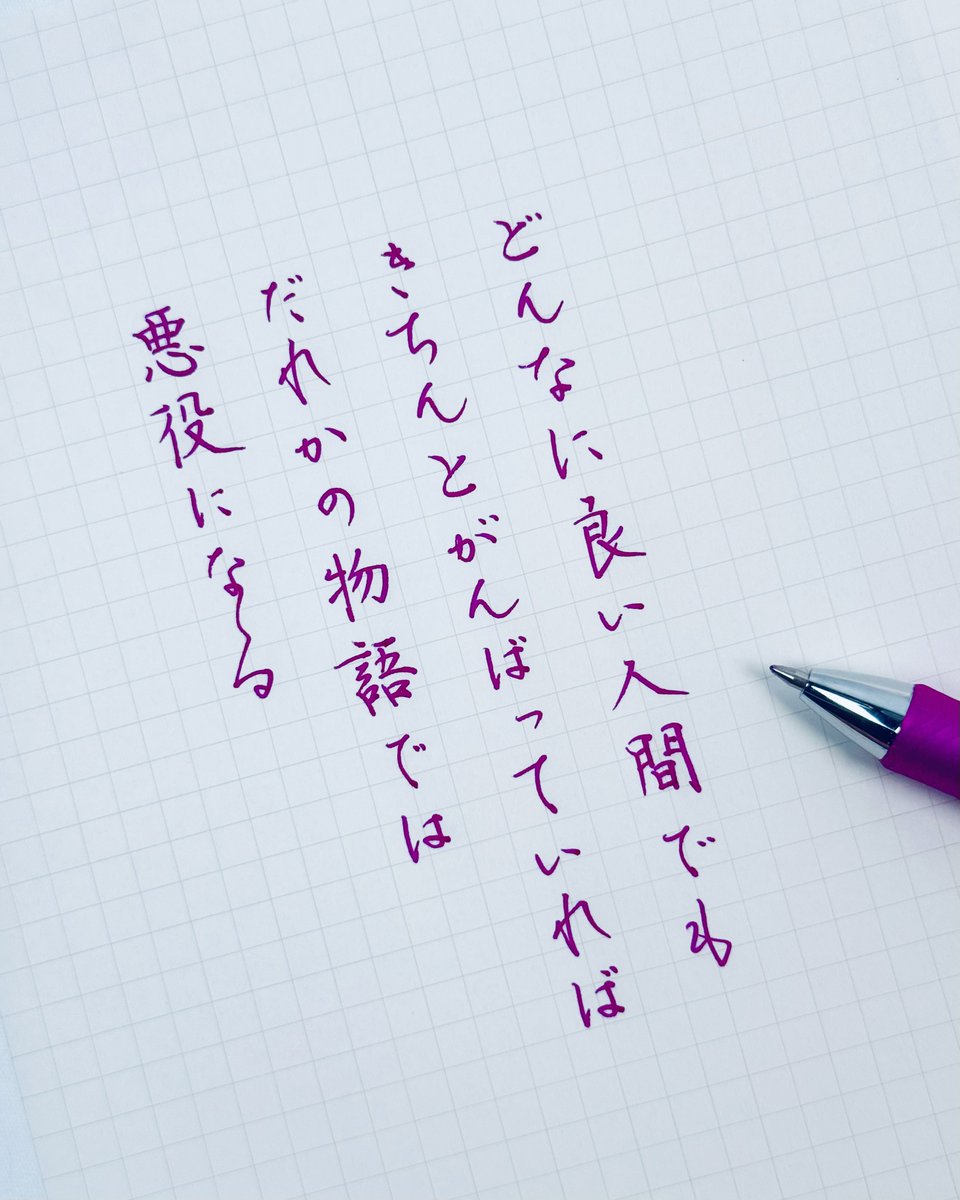 どんなに良い人間でも
きちんとがんばっていれば
だれかの物語では
悪役になる